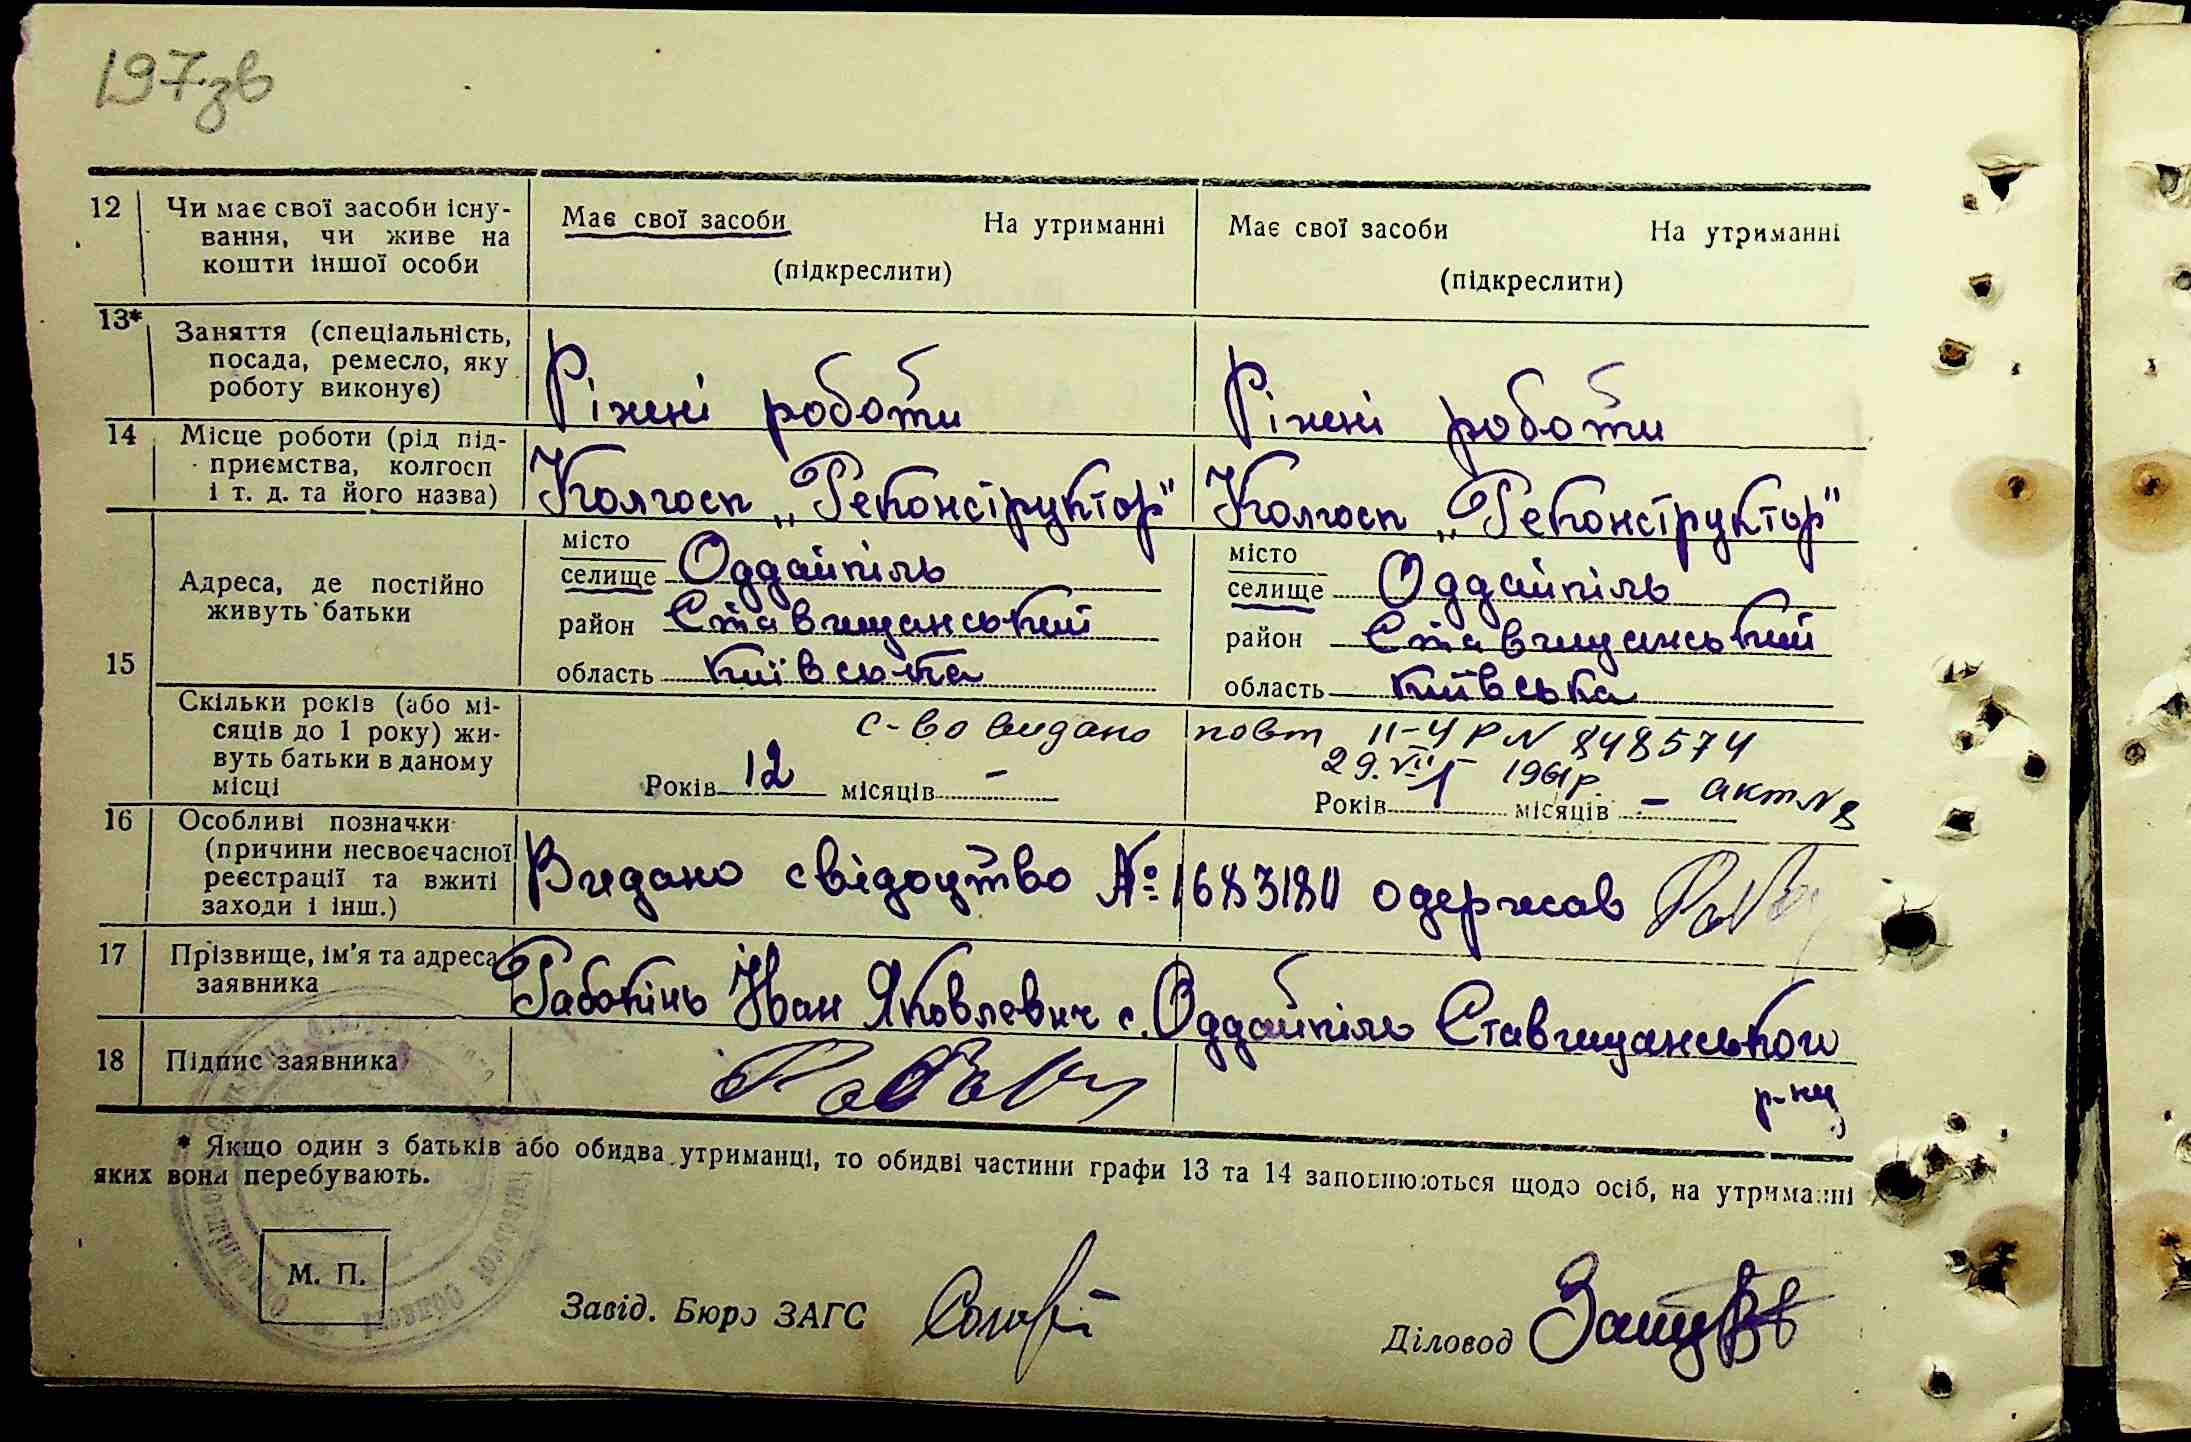 197зв
12 Чи має свої засоби існу-
вання, чи живе на
кошти іншої особи
Має свої засоби На утриманні
(підкреслити)
Має свої засоби На утриманні
(підкреслити)
13* Заняття (спеціальність,
посада, ремесло, яку
роботу виконує)
Ріжні роботи
Ріжні роботи
14 Місце роботи (рід під-
приємства, колгосп
і т. д. та його назва)
Колгосп „Реконструктор"
Колгосп „Реконструктор"
15 Адреса, де постійно
живуть батьки
місто
селище Оддайпіль
район Ставищанський
область Київська
місто
селище Оддайпіль
район Ставищанський
область Київська
Скільки років (або мі-
сяців до 1 року) жи-
вуть батьки в даному
місці
с-во видано повт II-ЧР N 848574
29.VII 1961р. акт N 8
Років 12 місяців –
Років 1 місяців –
16 Особливі позначки
(причини несвоєчасної
реєстрації та вжиті
заходи і інш.)
Видано свідоцтво № 1683180 одержав
17 Прізвище, ім'я та адреса
заявника
Рабокінь Іван Яковлевич с. Оддайпіль Ставищанського
р-ну
18 Підпис заявника
* Якщо один з батьків або обидва утриманці, то обидві частини графи 13 та 14 заповнюються щодо осіб, на утриманні
яких вони перебувають.
М. П.
Завід. Бюро ЗАГС
Діловод